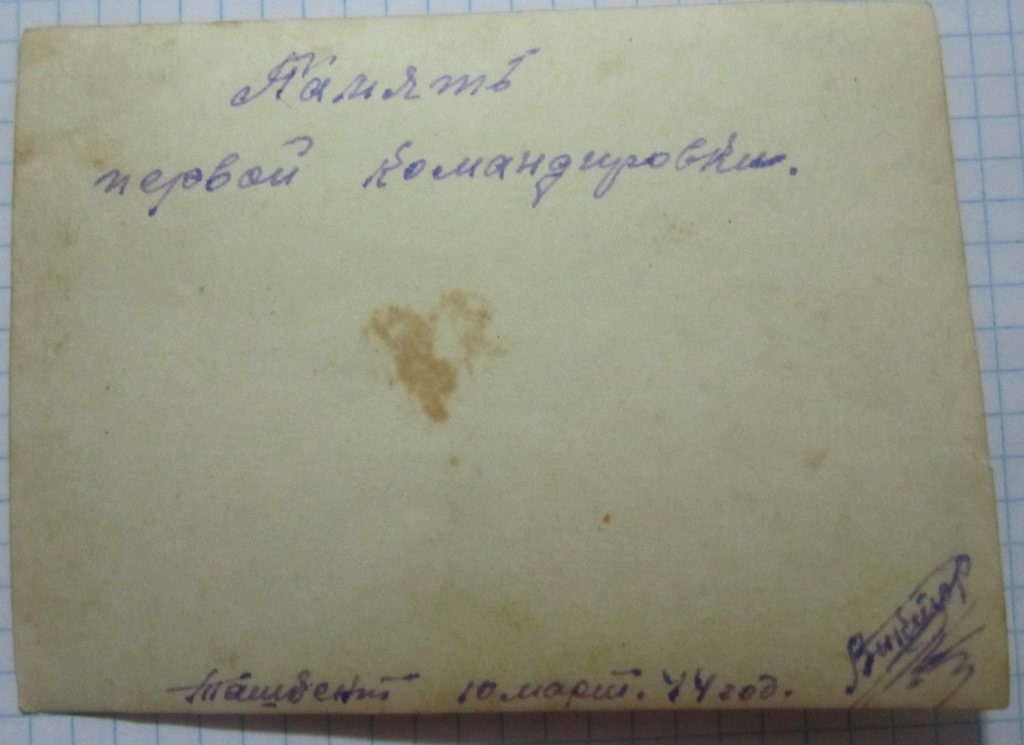 Память
первой командировки.
Виктор
Ташкент 10 март. 44 год.